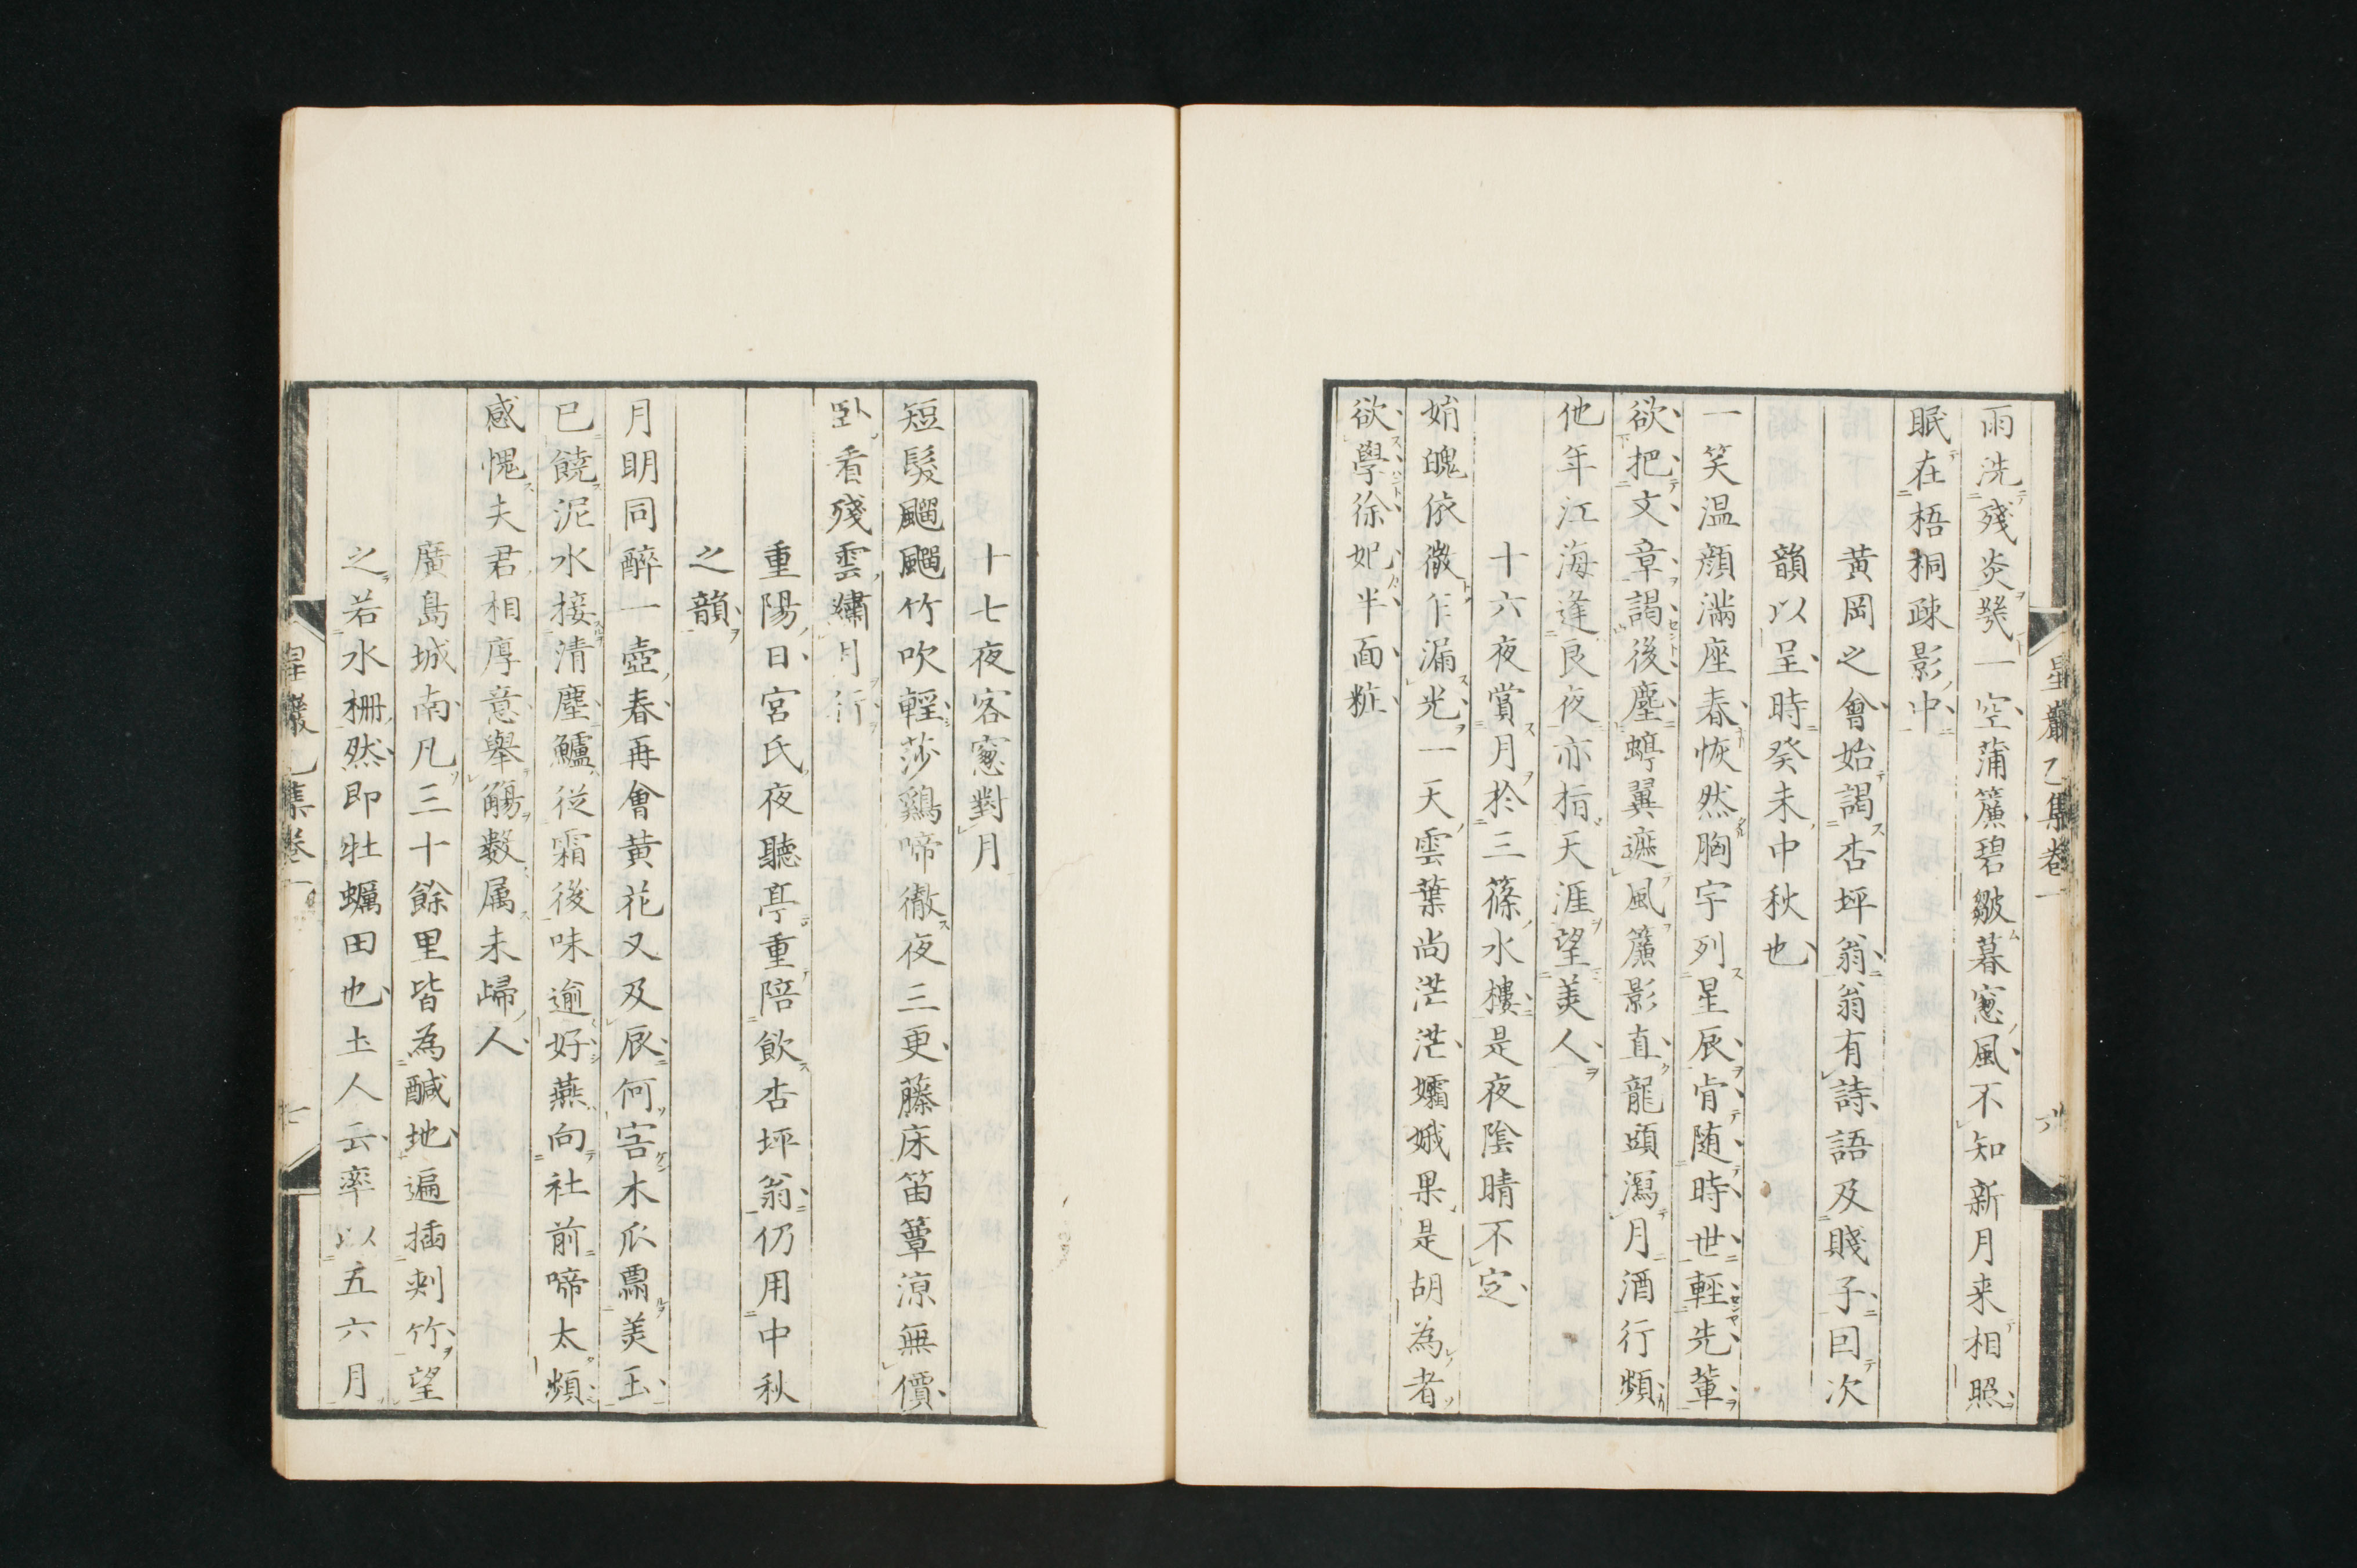 星巖乙集卷一
六
雨洗殘炎發一空蒲簾碧皺暮窻風不知新月来相照
眠在梧桐疎影中
黃岡之會始謁杏坪翁翁有詩語及賤子因次
韻以呈時癸未中秋也
一笑温顔滿座春恢然胸宇列星辰肯随時世輕先輩
欲把文章謁後塵蜉翼遮風簾影直龍頭瀉月酒行頻
他年江海逢良夜亦指天涯望美人
十六夜賞月於三篠水樓是夜陰晴不定
娋䰟依微乍漏光一天雲葉尚茫茫孀娥果是胡為者
欲學徐妃半面粧
十七夜客窻對月
短髮颼颼竹吹輕莎鷄啼徹夜三更藤床笛簟涼無價
臥看殘雲繡月行
重陽日宮氏夜聽亭重陪飲杏坪翁仍用中秋
之韻
月明同醉一壺春再會黄花又及辰何害木瓜酬美玉
已饒泥水接清塵鱸從霜後味逾好燕向社前啼太頻
感愧夫君相厚意舉觴數属未歸人
廣島城南凡三十餘里皆為鹹地遍插刺竹望
之若水柵然即牡蠣田也土人云率以五六月
星巖乙集卷一
七